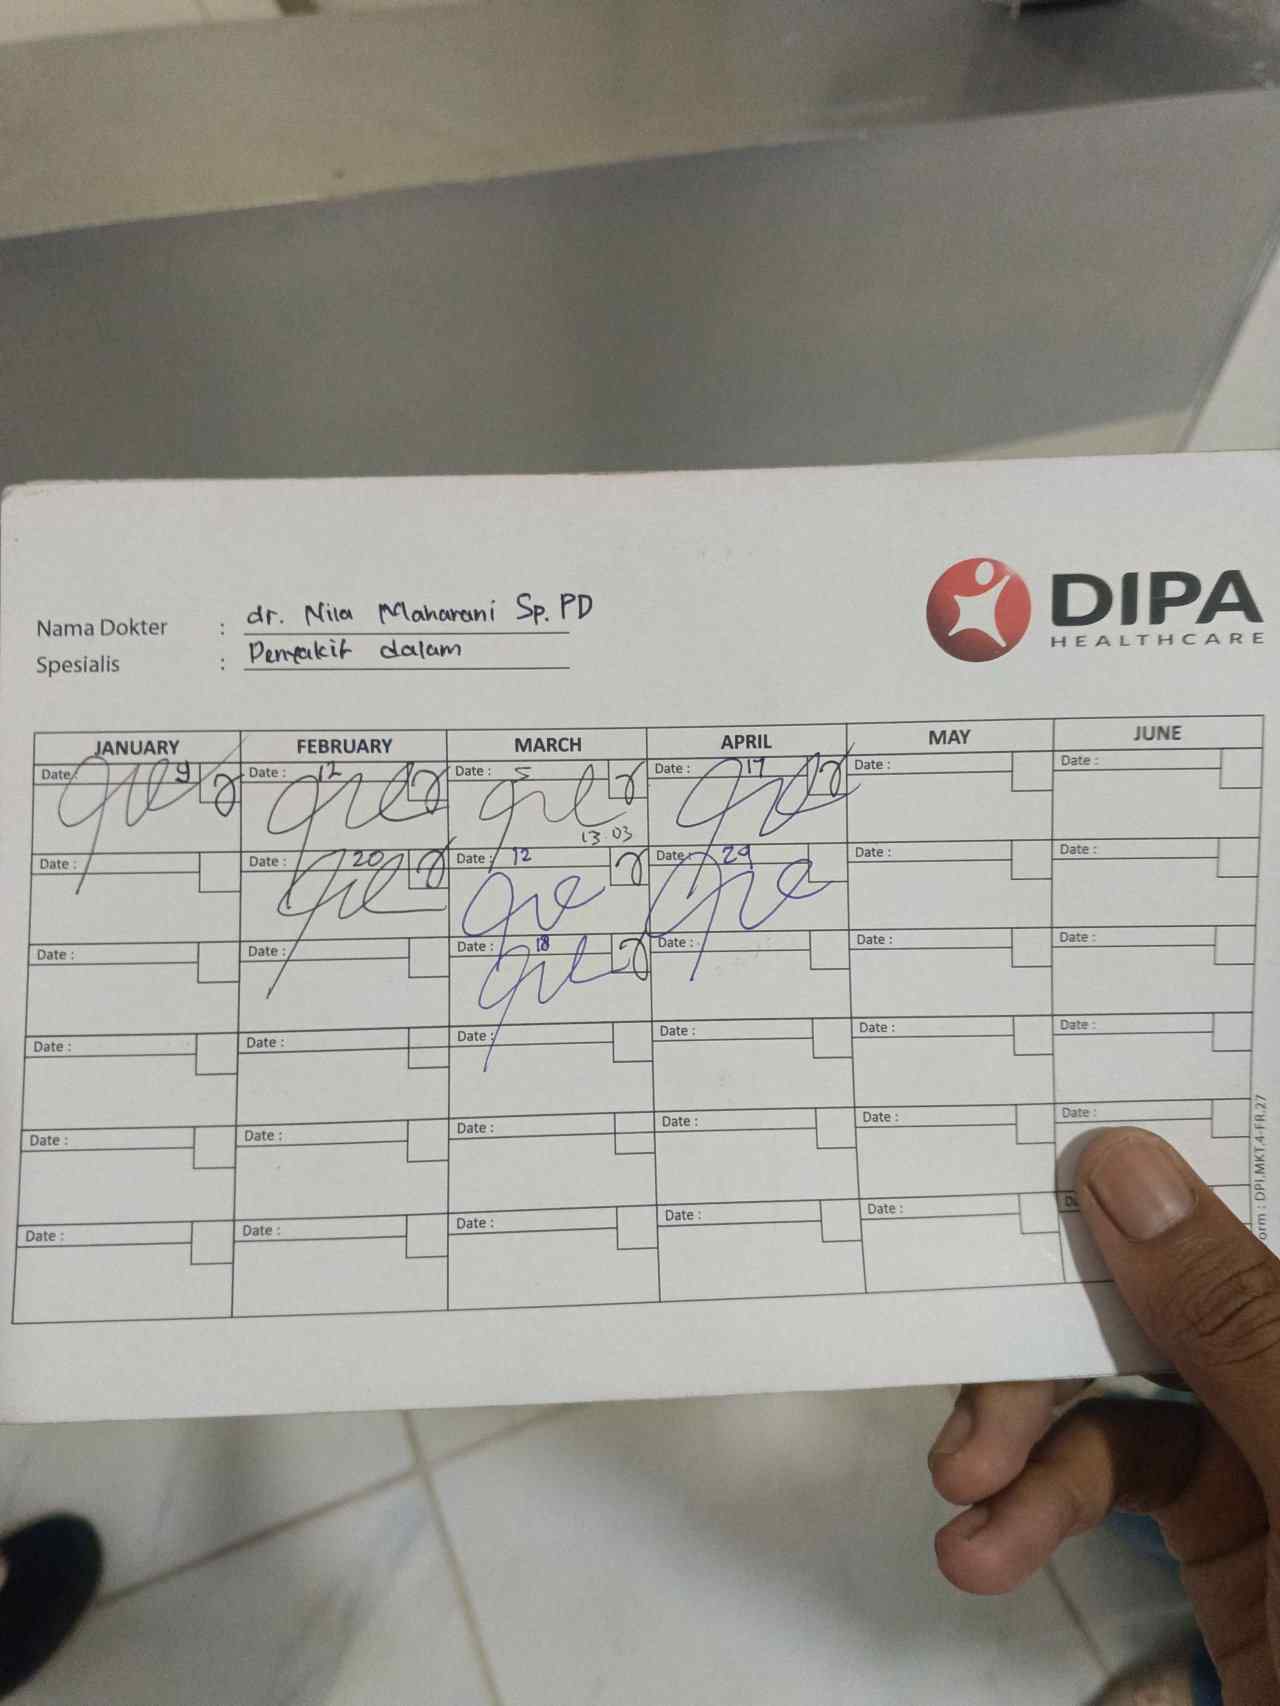 DIPA
HEALTHCARE
Nama Dokter : dr. Nila Maharani Sp.PD
Spesialis : Penyakit dalam
JANUARY FEBRUARY MARCH APRIL MAY JUNE
Date: 9 Date : 12 Date : 5 Date : 17 Date : Date :
13.03
Date : Date : 20 Date : 12 Date : 29 Date : Date :
Date : Date : Date : 18 Date : Date : Date :
Date : Date : Date : Date : Date : Date :
Date : Date : Date : Date : Date : Date :
Date : Date : Date : Date : Date :
orm : DPI.MKT.4-FR.27